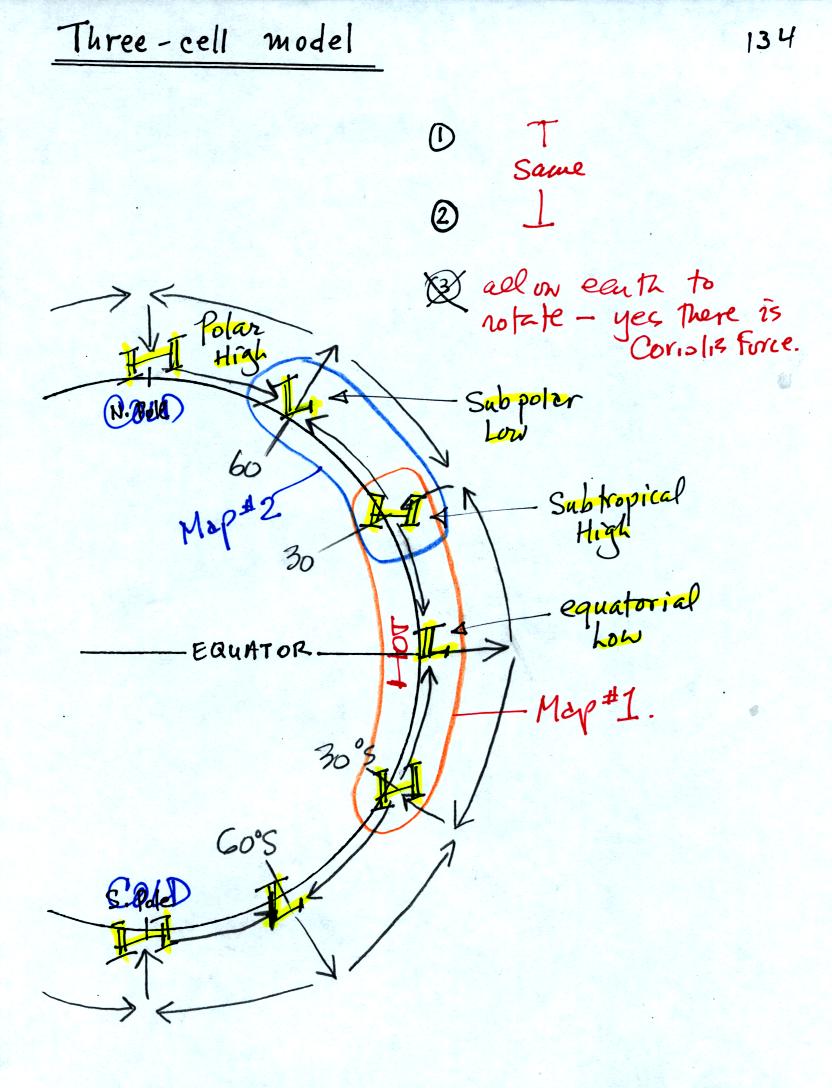 Three-cell model
134
① ↑
Same
② ⊥
③ allow earth to
rotate – yes there is
Coriolis Force.
Polar
High
H
N. Pole
COLD
L
Subpolar
Low
60
Map #2
H
Subtropical
High
30
equatorial
Low
L
HOT
EQUATOR
Map #1.
30°S
H
60°S
L
COLD
S. Pole
H